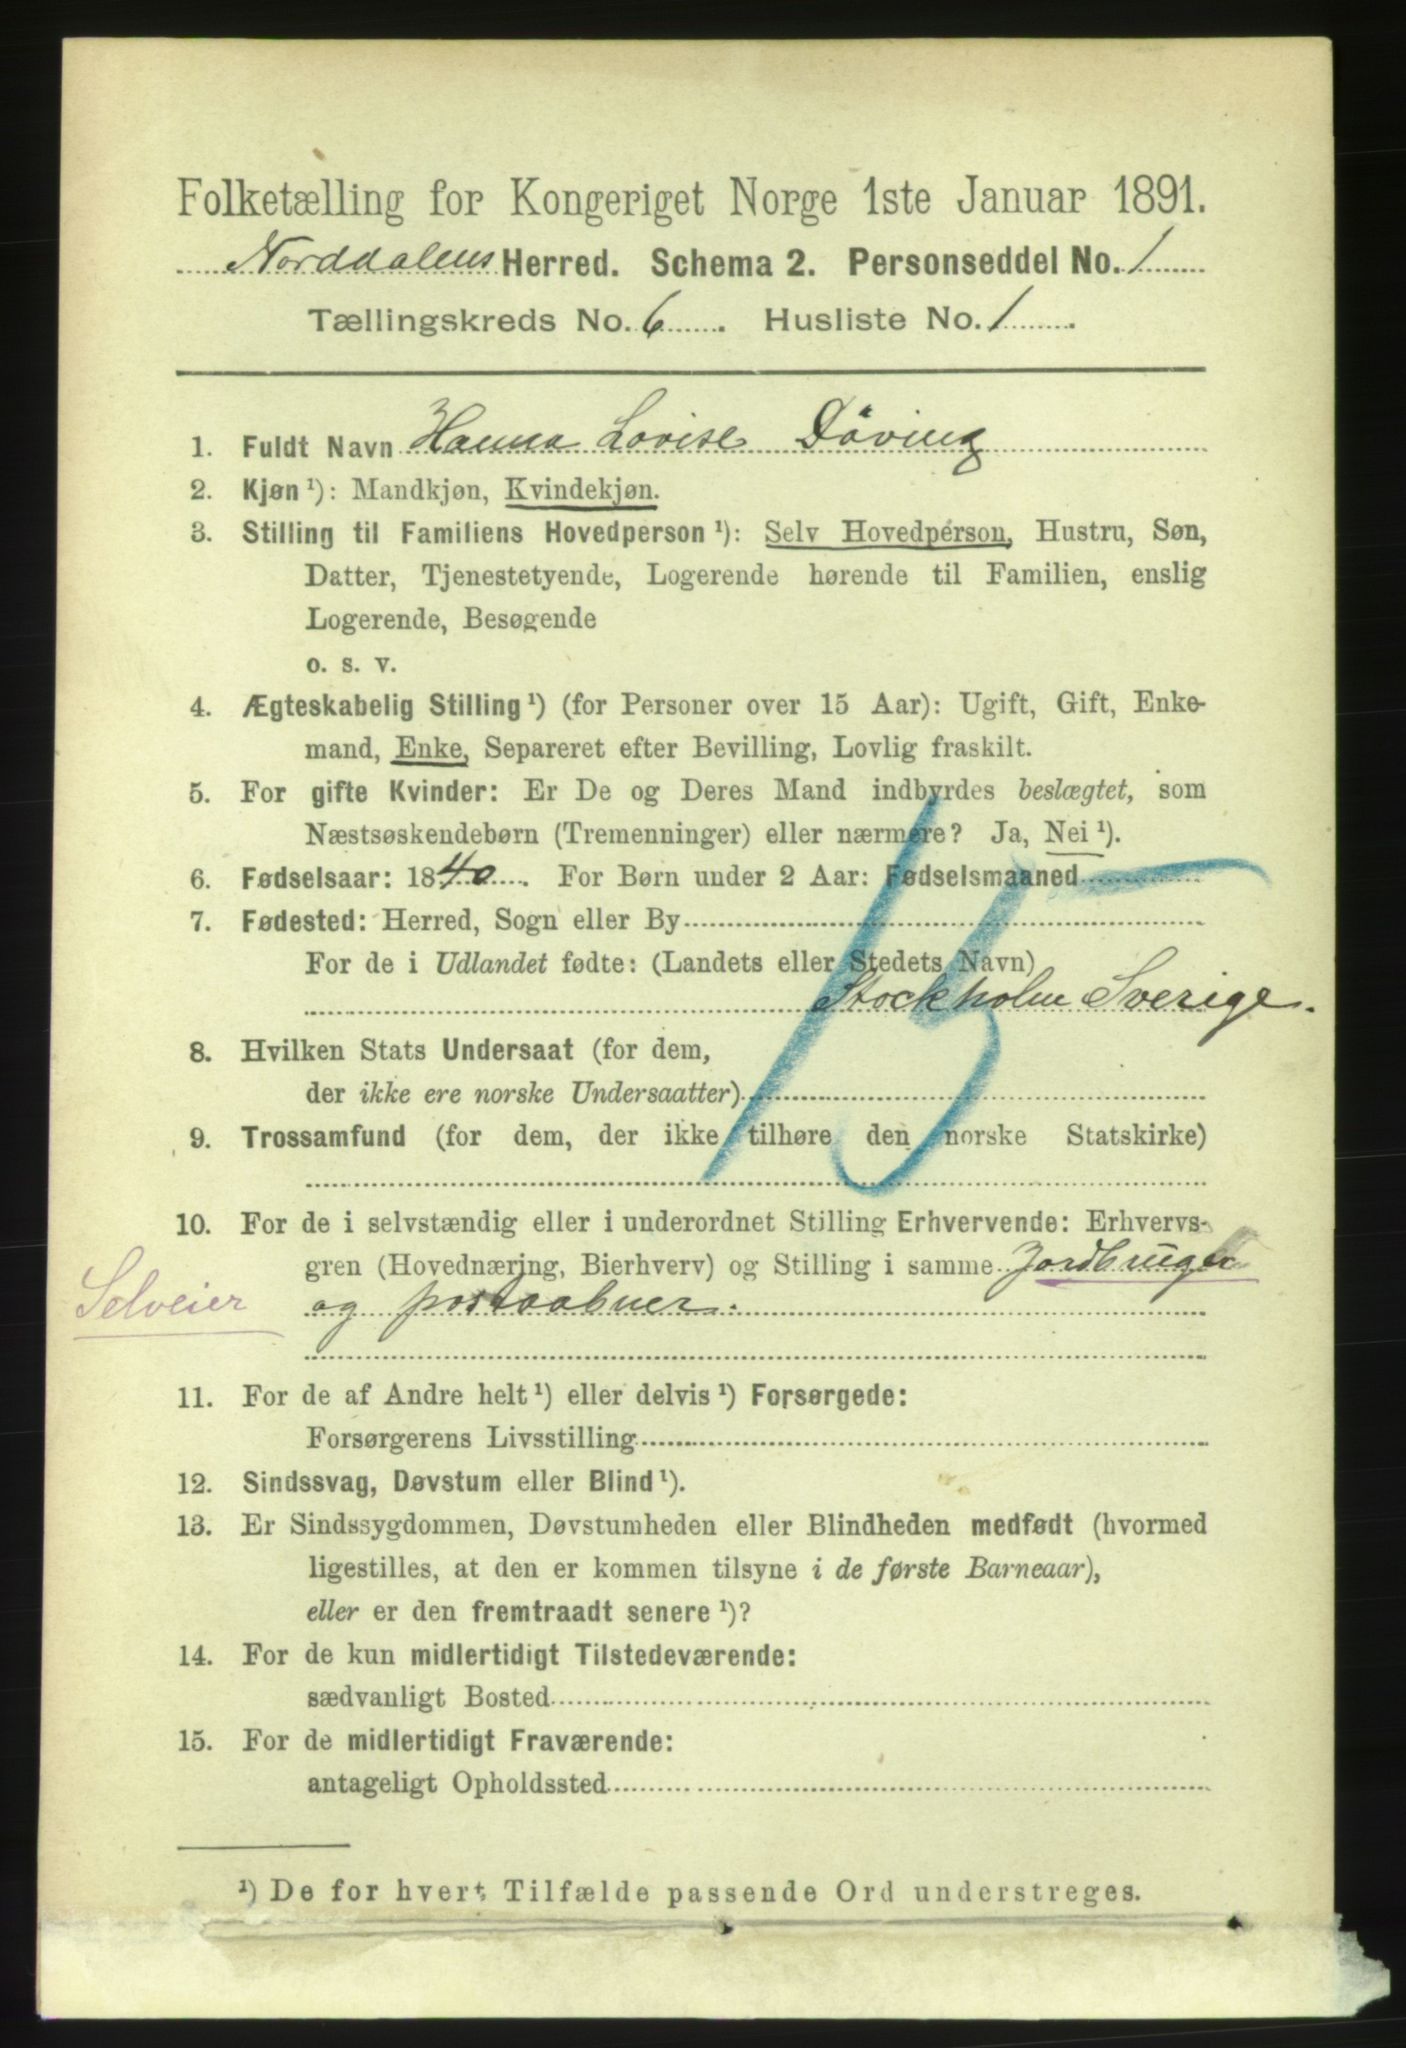 Folketælling for Kongeriget Norge 1ste Januar 1891.
Norddalens Herred. Schema 2. Personseddel No. 1
Tællingskreds No. 6. Husliste No. 1.
1. Fuldt Navn Hanna Lovise Döving
2. Kjøn ¹): Mandkjøn, Kvindekjøn.
3. Stilling til Familiens Hovedperson ¹): Selv Hovedperson, Hustru, Søn,
Datter, Tjenestetyende, Logerende hørende til Familien, enslig
Logerende, Besøgende
o. s. v.
4. Ægteskabelig Stilling ¹) (for Personer over 15 Aar): Ugift, Gift, Enke-
mand, Enke, Separeret efter Bevilling, Lovlig fraskilt.
5. For gifte Kvinder: Er De og Deres Mand indbyrdes beslægtet, som
Næstsøskendebørn (Tremenninger) eller nærmere? Ja, Nei ¹).
6. Fødselsaar: 1840. For Børn under 2 Aar: Fødselsmaaned
7. Fødested: Herred, Sogn eller By
For de i Udlandet fødte: (Landets eller Stedets Navn)
Stockholm Sverige.
15
8. Hvilken Stats Undersaat (for dem,
der ikke ere norske Undersaatter)
9. Trossamfund (for dem, der ikke tilhøre den norske Statskirke)
10. For de i selvstændig eller i underordnet Stilling Erhvervende: Erhvervs-
gren (Hovednæring, Bierhverv) og Stilling i samme Jordbruger
Selveier og postaabner.
11. For de af Andre helt ¹) eller delvis ¹) Forsørgede:
Forsørgerens Livsstilling
12. Sindssvag, Døvstum eller Blind ¹).
13. Er Sindssygdommen, Døvstumheden eller Blindheden medfødt (hvormed
ligestilles, at den er kommen tilsyne i de første Barneaar),
eller er den fremtraadt senere ¹)?
14. For de kun midlertidigt Tilstedeværende:
sædvanligt Bosted
15. For de midlertidigt Fraværende:
antageligt Opholdssted
¹) De for hvert Tilfælde passende Ord understreges.